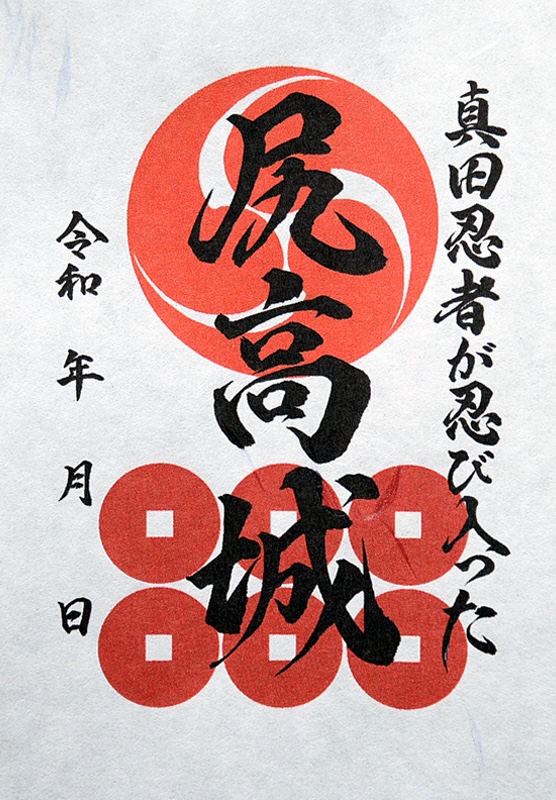 真田忍者が忍び入った
尻高城
令和 年 月 日